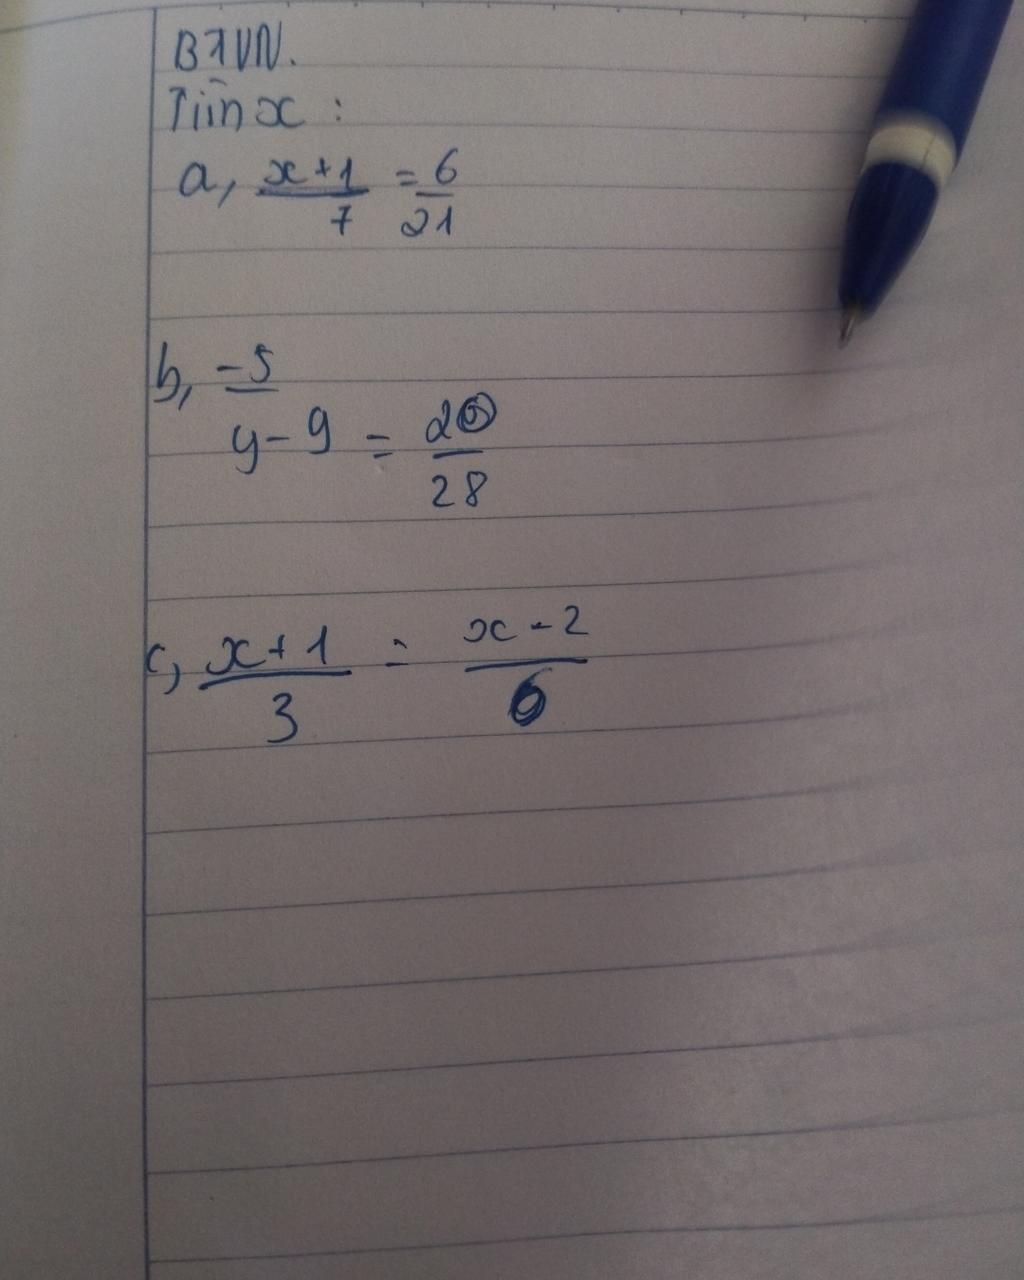 BTVN.
Tìm x :
a, x+1/7 = 6/21
b, -5/y-9 = 20/28
c, x+1/3 = x-2/6